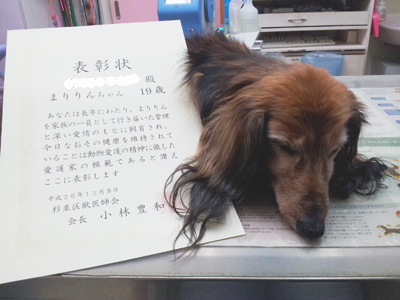 表彰状
殿
まりりんちゃん 19歳
あなたは長年にわたり、まりりん
を家族の一員として行き届いた管理
と深い愛情のもとに飼育され、
今日なおその健康を維持されて
いることは動物愛護の精神に徹した
愛護家の模範であると讃え
ここに表彰します
平成26年12月吉日
杉並区獣医師会
会長 小林豊和